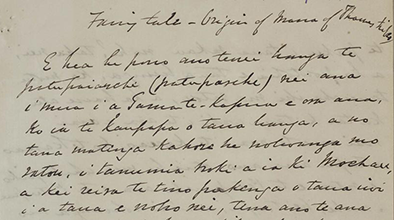 Fairy tale – Origin of Mana of Thames tribes
E hea he pono ano tenei hanga te
patupaiarehe (patupaerehe) nei ana
i mua i a Tama-te-kapua e ora ana,
Ko ia te kaupapa o tana hanga, a no
tana matenga kahore he notunga mo
ratou, i tanumia hoki a ia ki Moehau,
a kei reira te tino pakenga o tana iwi
i a tana e noho nei, tena ano te ana